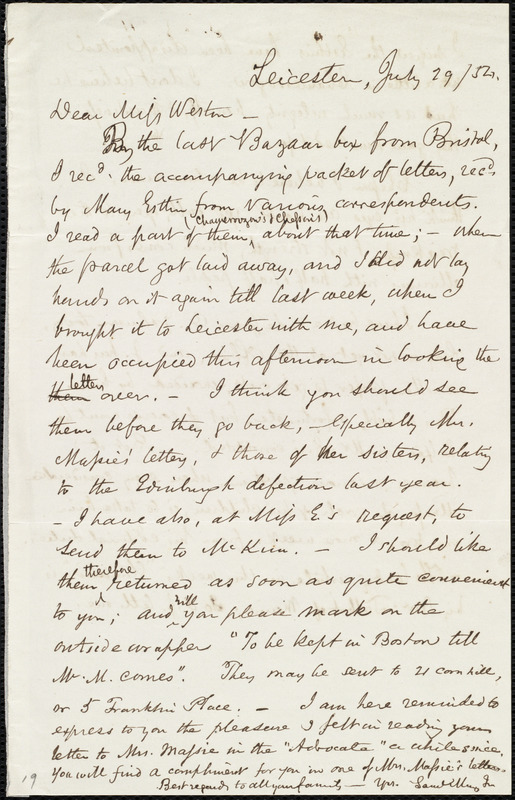 Leicester, July 29/52.
Dear Miss Weston –
By the last Bazaar box from Bristol,
I recd. the accompanying packet of letters, recd.
by Mary Estlin from various correspondents.
(Chamerovzow's & Chesson's)
I read a part of them, about that time; – when
the parcel got laid away, and I did not lay
hands on it again till last week, when I
brought it to Leicester with me, and have
been occupied this afternoon in looking the
them letters over. – I think you should see
them before they go back, – especially Mrs.
Massie's letters, & those of her sisters, relating
to the Edinburgh defection last year.
– I have also, at Miss E's request, to
send them to McKim. – I should like
them therefore returned as soon as quite convenient
to you; and will you please mark on the
outside wrapper "To be kept in Boston till
Mr. M. comes". They may be sent to 21 Cornhill,
or 5 Franklin Place. – I am here reminded to
express to you the pleasure I felt in reading your
letter to Mrs. Massie in the "Advocate" a while since.
You will find a compliment for you in one of Mrs. Massie's letters.
Best regards to all your family – Yrs. Saml May Jr
19